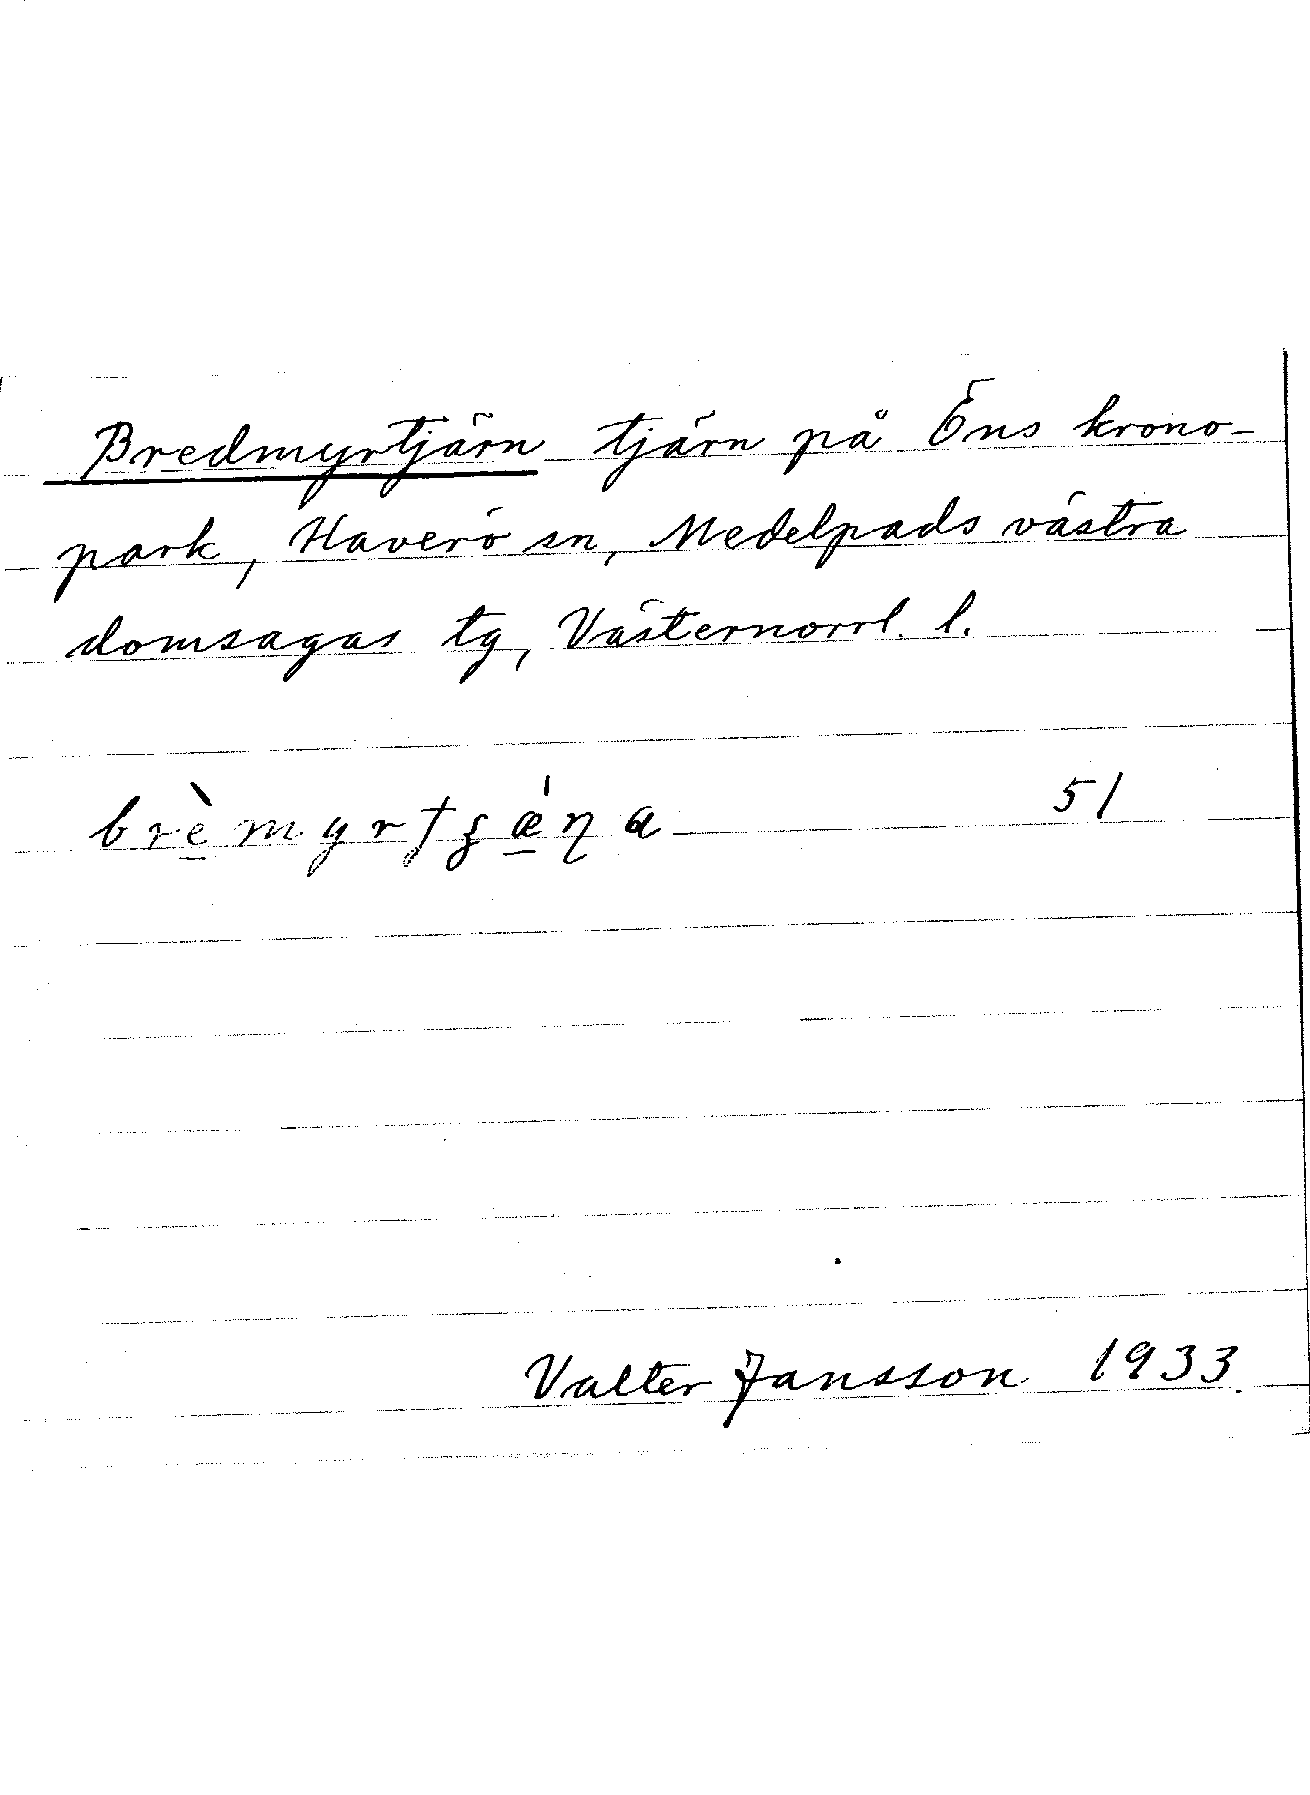 Bredmyrtjärn tjärn på Öns krono-
park, Haverö sn, Medelpads västra
domsagas tg, Västernorrl. l.
brè̠myrtʂǽ̠ɳa 51
Valter Jansson 1933.